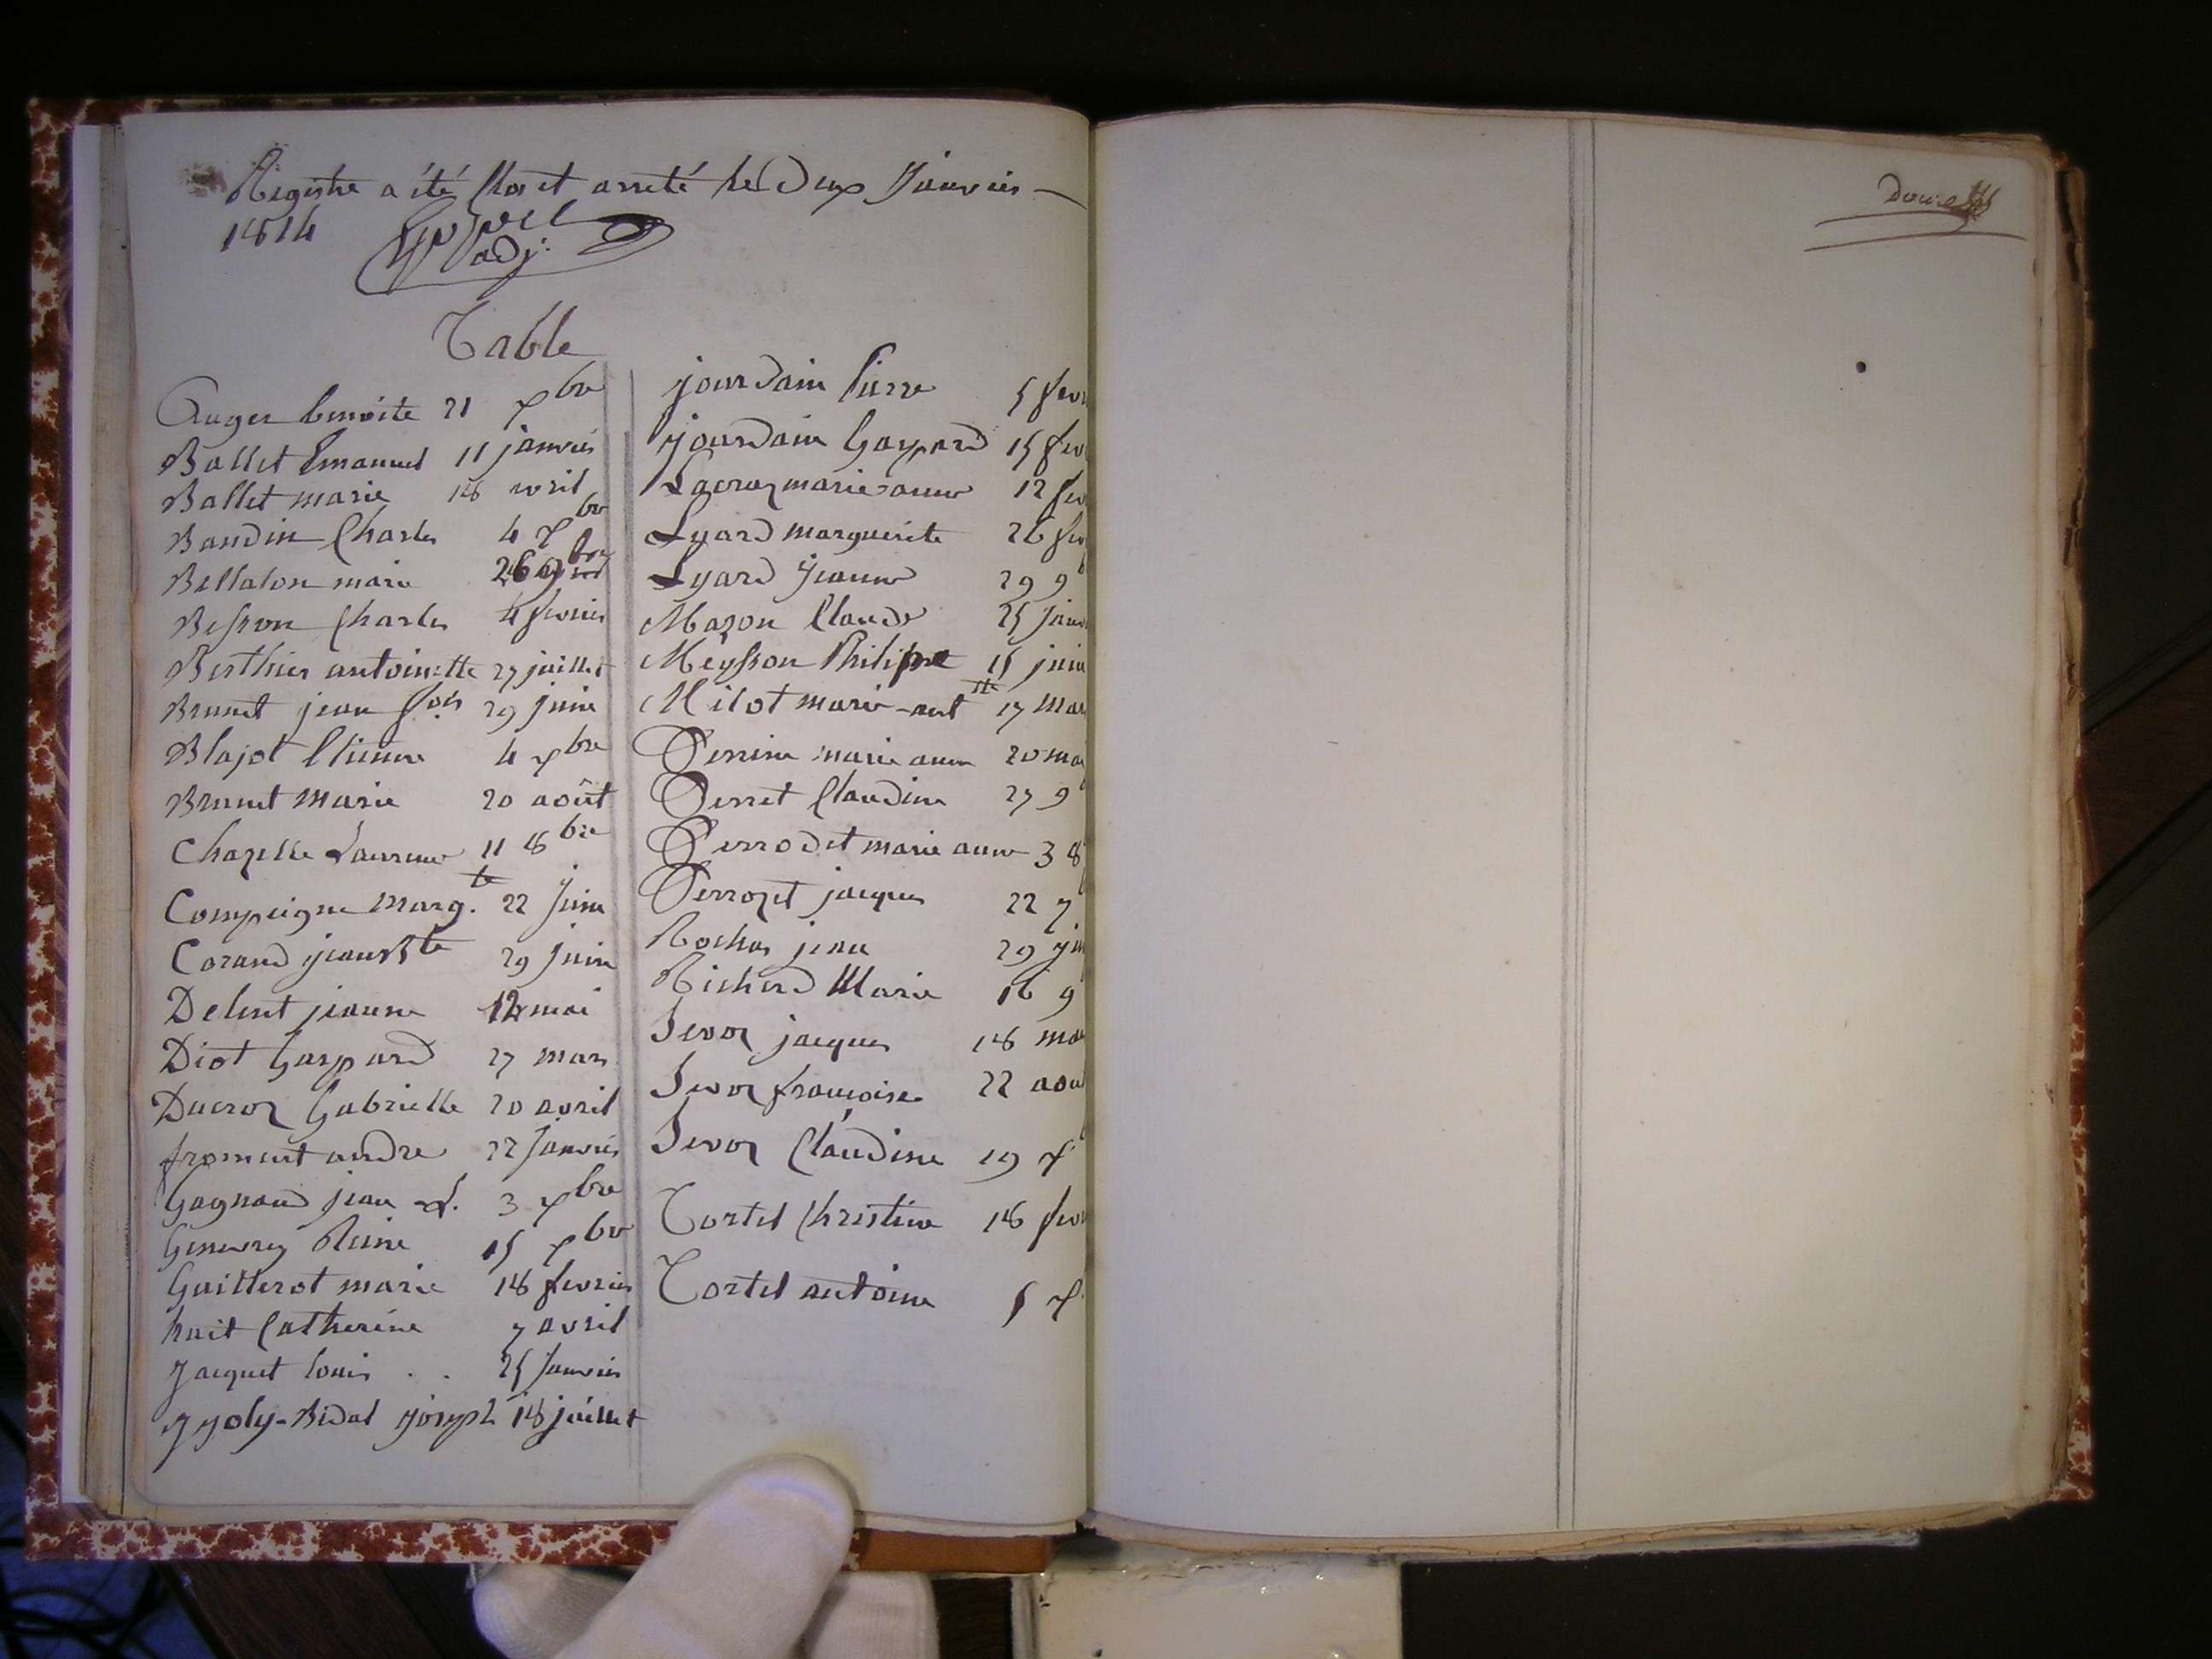 Registre a été Clos et arreté le Deux Janvier
1814
adj.
Table
Auger benoite 21 xbre
Ballet Emanuel 11 janvier
Ballet marie 18 avril
Baudin Charles 4 xbre
Bellaton marie 26 9bre
Besson Charles 4 fevrier
Berthier antoinette 27 juillet
Brunet jean fois 29 juin
Blajot Etienne 4 xbre
Brunet Marie 20 août
Chapelle Laurence 11 8bre
Compeigne Marg.te 22 Juin
Corand jeanBte 29 Juin
Delent jeanne 12 mai
Diot Gaspard 27 mars
Ducroz Gabrielle 20 avril
froment andre 22 Janvier
Gagnaud jean L. 3 xbre
Genevrey Reine 15 xbre
Guillerot marie 18 fevrier
huit Catherine 7 avril
Jacquet Louis . . 25 Janvier
Joly-Bidal joseph 18 juillet
jourdain Pierre 5 fevr
jourdain Gaspard 15 fev
Lacroz marie anne 12 fev
Lyard marguerite 26 fev
Lyard Jeanne 29 9b
Mazon Claude 25 janv
Meysson Philippe 15 juin
Milot marie-antte 17 mar
Perrine marie anne 20 mai
Perret Claudine 27 9
Perrodet marie anne 3 8
Perrozet jacques 22 7
Rochas jean 29
Richerd Marie 16 9
Sevoz jacques 18 ma
Sevoz françoise 22 aou
Sevoz Claudine 19 x
Tortel Christine 18 fevr
Tortel antoine 5 x